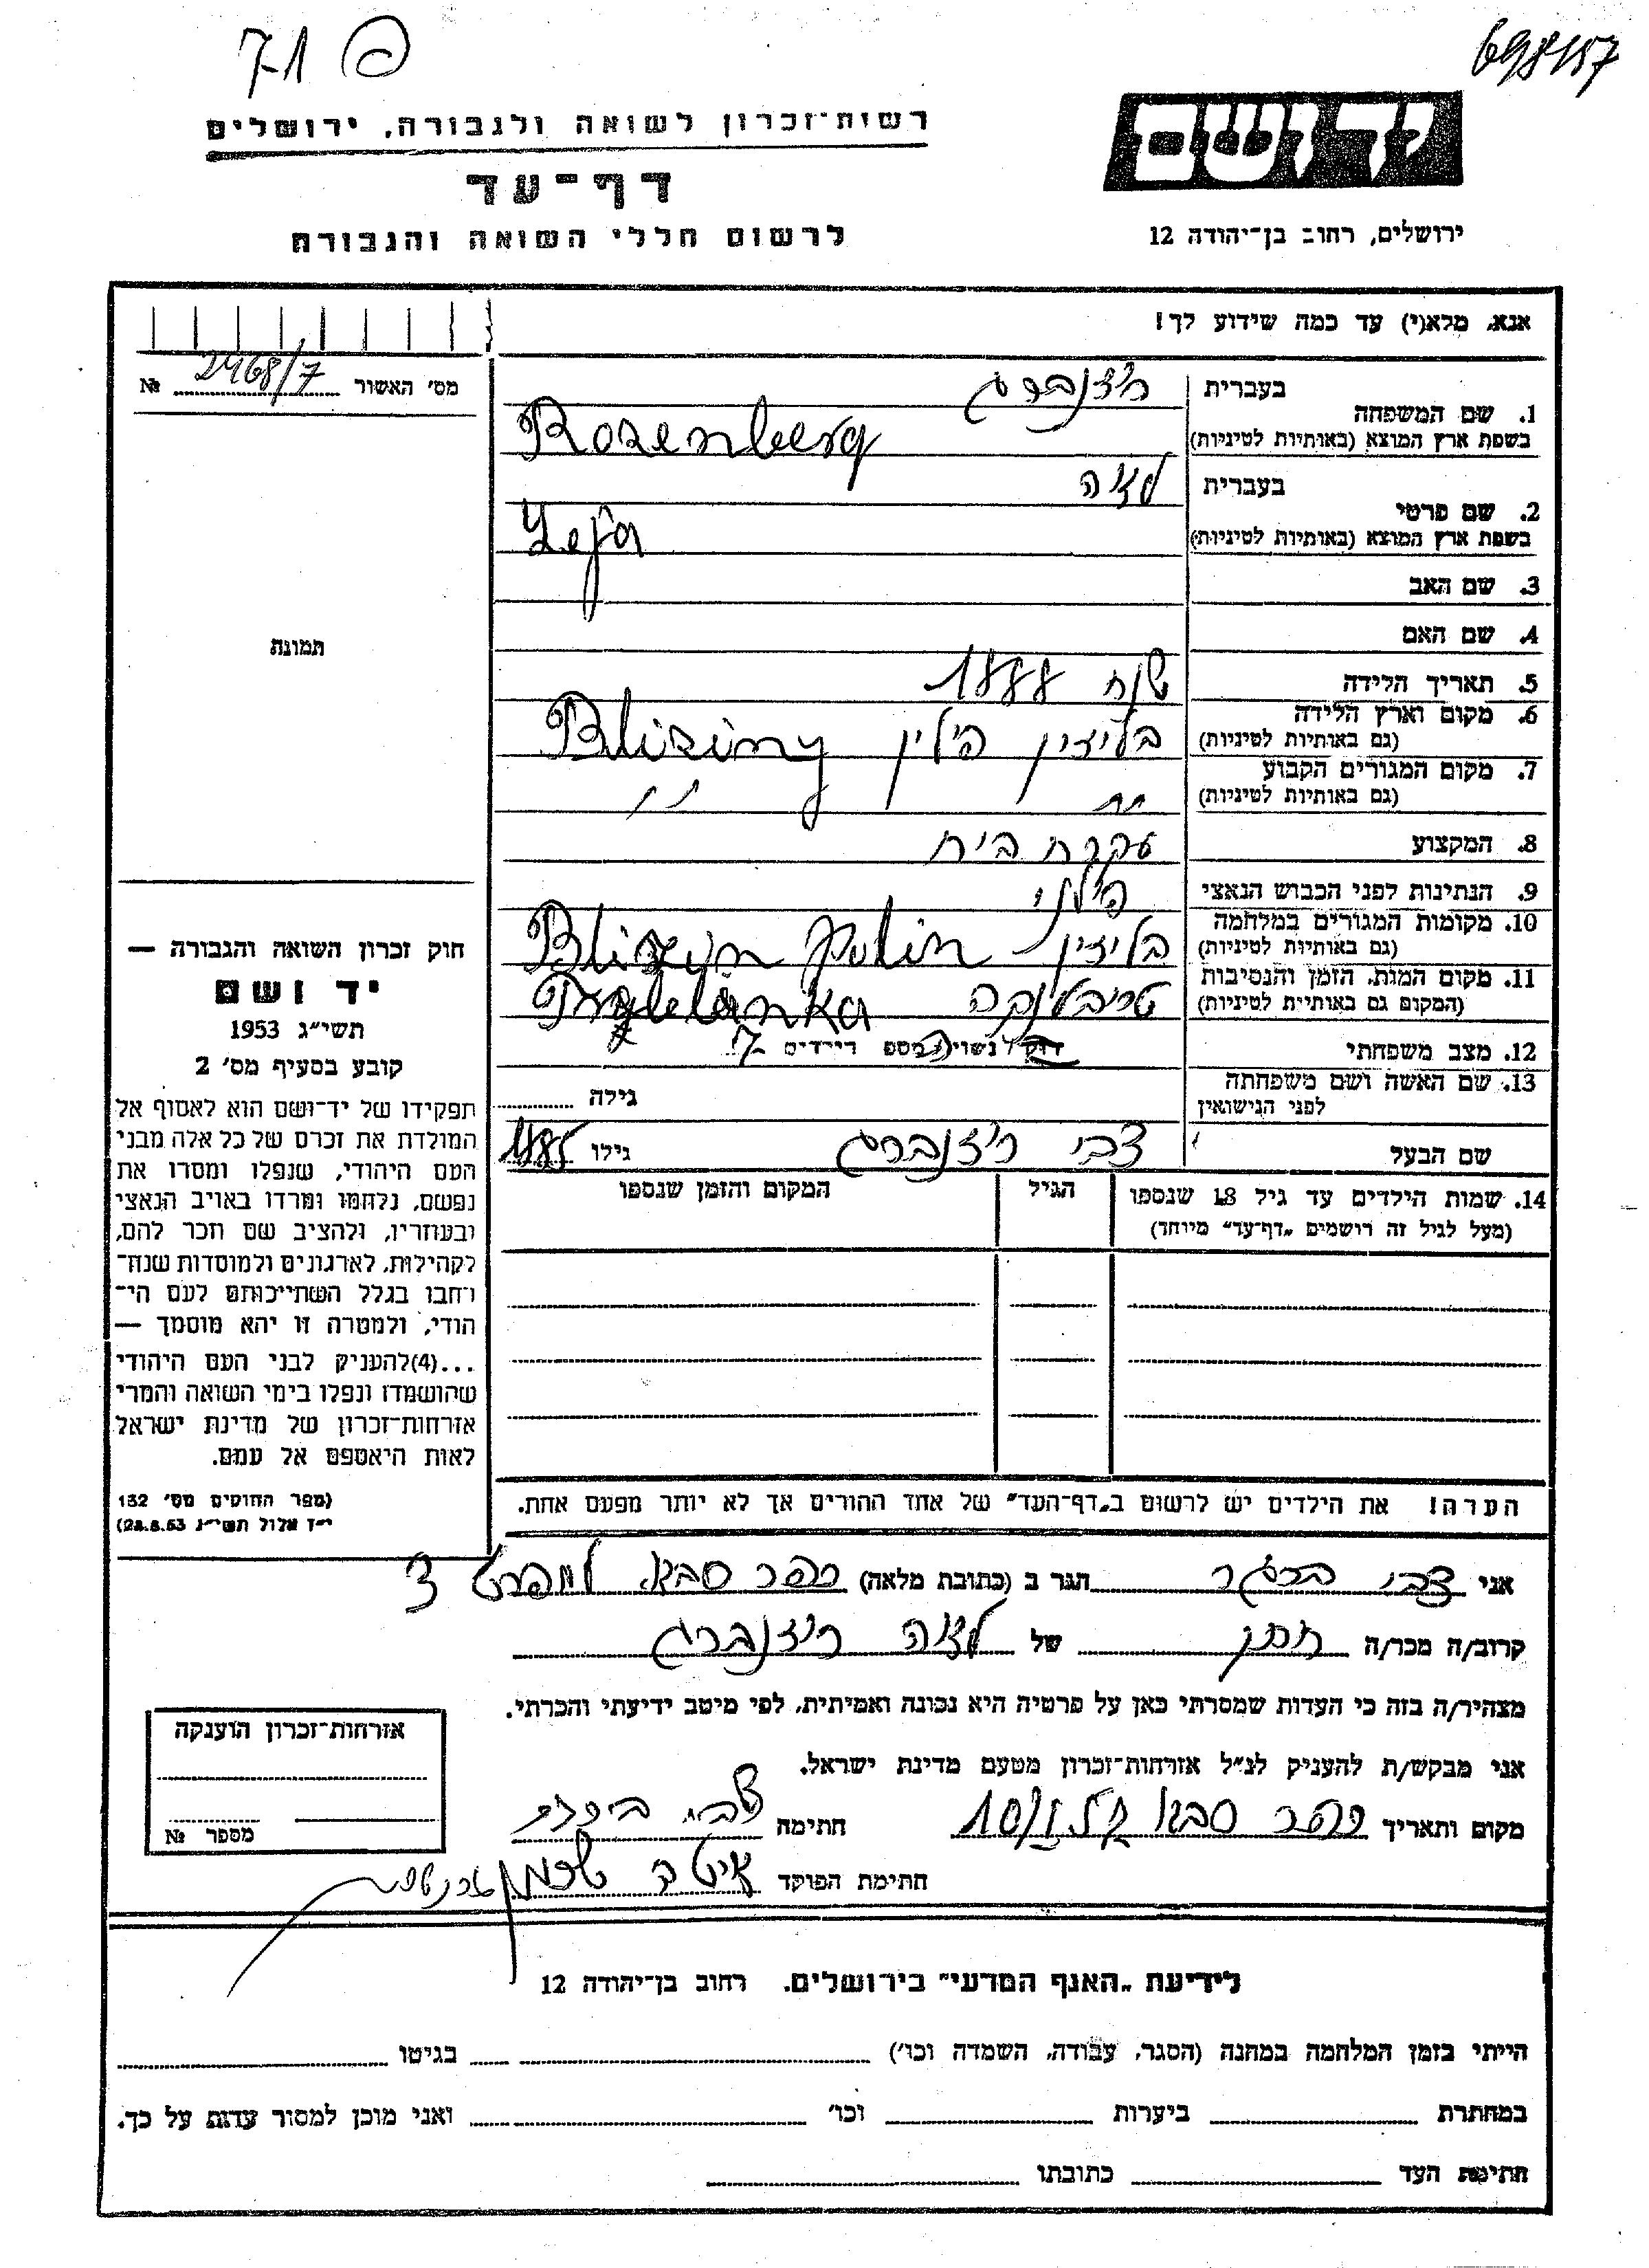 71
698157
רשות־זכרון לשואה ולגבורה, ירושלים
יד ושם
דף־עד
לרשום חללי השואה והגבורה
ירושלים, רחוב בן־יהודה 12
אנא, מלא(י) עד כמה שידוע לך!
מס׳ האשור 2468/7 №
תמונה
1. שם המשפחה
בעברית רוזנברג
בשפת ארץ המוצא (באותיות לטיניות) Rozenberg
2. שם פרטי
בעברית לאה
בשפת ארץ המוצא (באותיות לטיניות) Leja
3. שם האב
4. שם האם
5. תאריך הלידה שנת 1888
6. מקום וארץ הלידה
(גם באותיות לטיניות) בליזין פולין Bliziny
7. מקום המגורים הקבוע
(גם באותיות לטיניות) " "
8. המקצוע עקרת בית
9. הנתינות לפני הכבוש הנאצי פולני
10. מקומות המגורים במלחמה
(גם באותיות לטיניות) בליזין Blizyn Polin
11. מקום המות, הזמן והנסיבות
(המקום גם באותיות לטיניות) טרבלינקה
12. מצב משפחתי רוק/ נשוי/ מספ הילדים 7
13. שם האשה ושם משפחתה
לפני הנישואין
גילה
שם הבעל צבי רוזנברג גילו 1885
14. שמות הילדים עד גיל 18 שנספו
(מעל לגיל זה רושמים „דף־עד" מיוחד)
הגיל
המקום והזמן שנספו
הערה! את הילדים יש לרשום ב„דף־העד" של אחד ההורים אך לא יותר מפעם אחת.
חוק זכרון השואה והגבורה —
יד ושם
תשי״ג 1953
קובע בסעיף מס׳ 2
תפקידו של יד־ושם הוא לאסוף אל
המולדת את זכרם של כל אלה מבני
העם היהודי, שנפלו ומסרו את
נפשם, נלחמו ומרדו באויב הנאצי
ובעוזריו, ולהציב שם וזכר להם,
לקהילות, לארגונים ולמוסדות שנח־
רבו בגלל השתייכותם לעם הי־
הודי, ולמטרה זו יהא מוסמך —
...(4)להעניק לבני העם היהודי
שהושמדו ונפלו בימי השואה והמרי
אזרחות־זכרון של מדינת ישראל
לאות היאספם אל עמם.
(ספר החוקים מס׳ 132
י״ד אלול תשי״ג 28.8.53)
אני צבי הגר ב (כתובת מלאה) כפר סבא
קרוב/ה מכר/ה חתן של לאה רוזנברג
מצהיר/ה בזה כי העדות שמסרתי כאן על פרטיה היא נכונה ואמיתית, לפי מיטב ידיעתי והכרתי.
אני מבקש/ת להעניק לנ״ל אזרחות־זכרון מטעם מדינת ישראל.
מקום ותאריך כפר סבא חתימה צבי
חתימת הפוקד
אזרחות־זכרון הוענקה
מספר №
לידיעת „האגף המדעי" בירושלים. רחוב בן־יהודה 12
הייתי בזמן המלחמה במחנה (הסגר, עבודה, השמדה וכו׳) בגיטו
במחתרת ביערות וכו׳ ואני מוכן למסור עדות על כך.
חתימת העד כתובתו